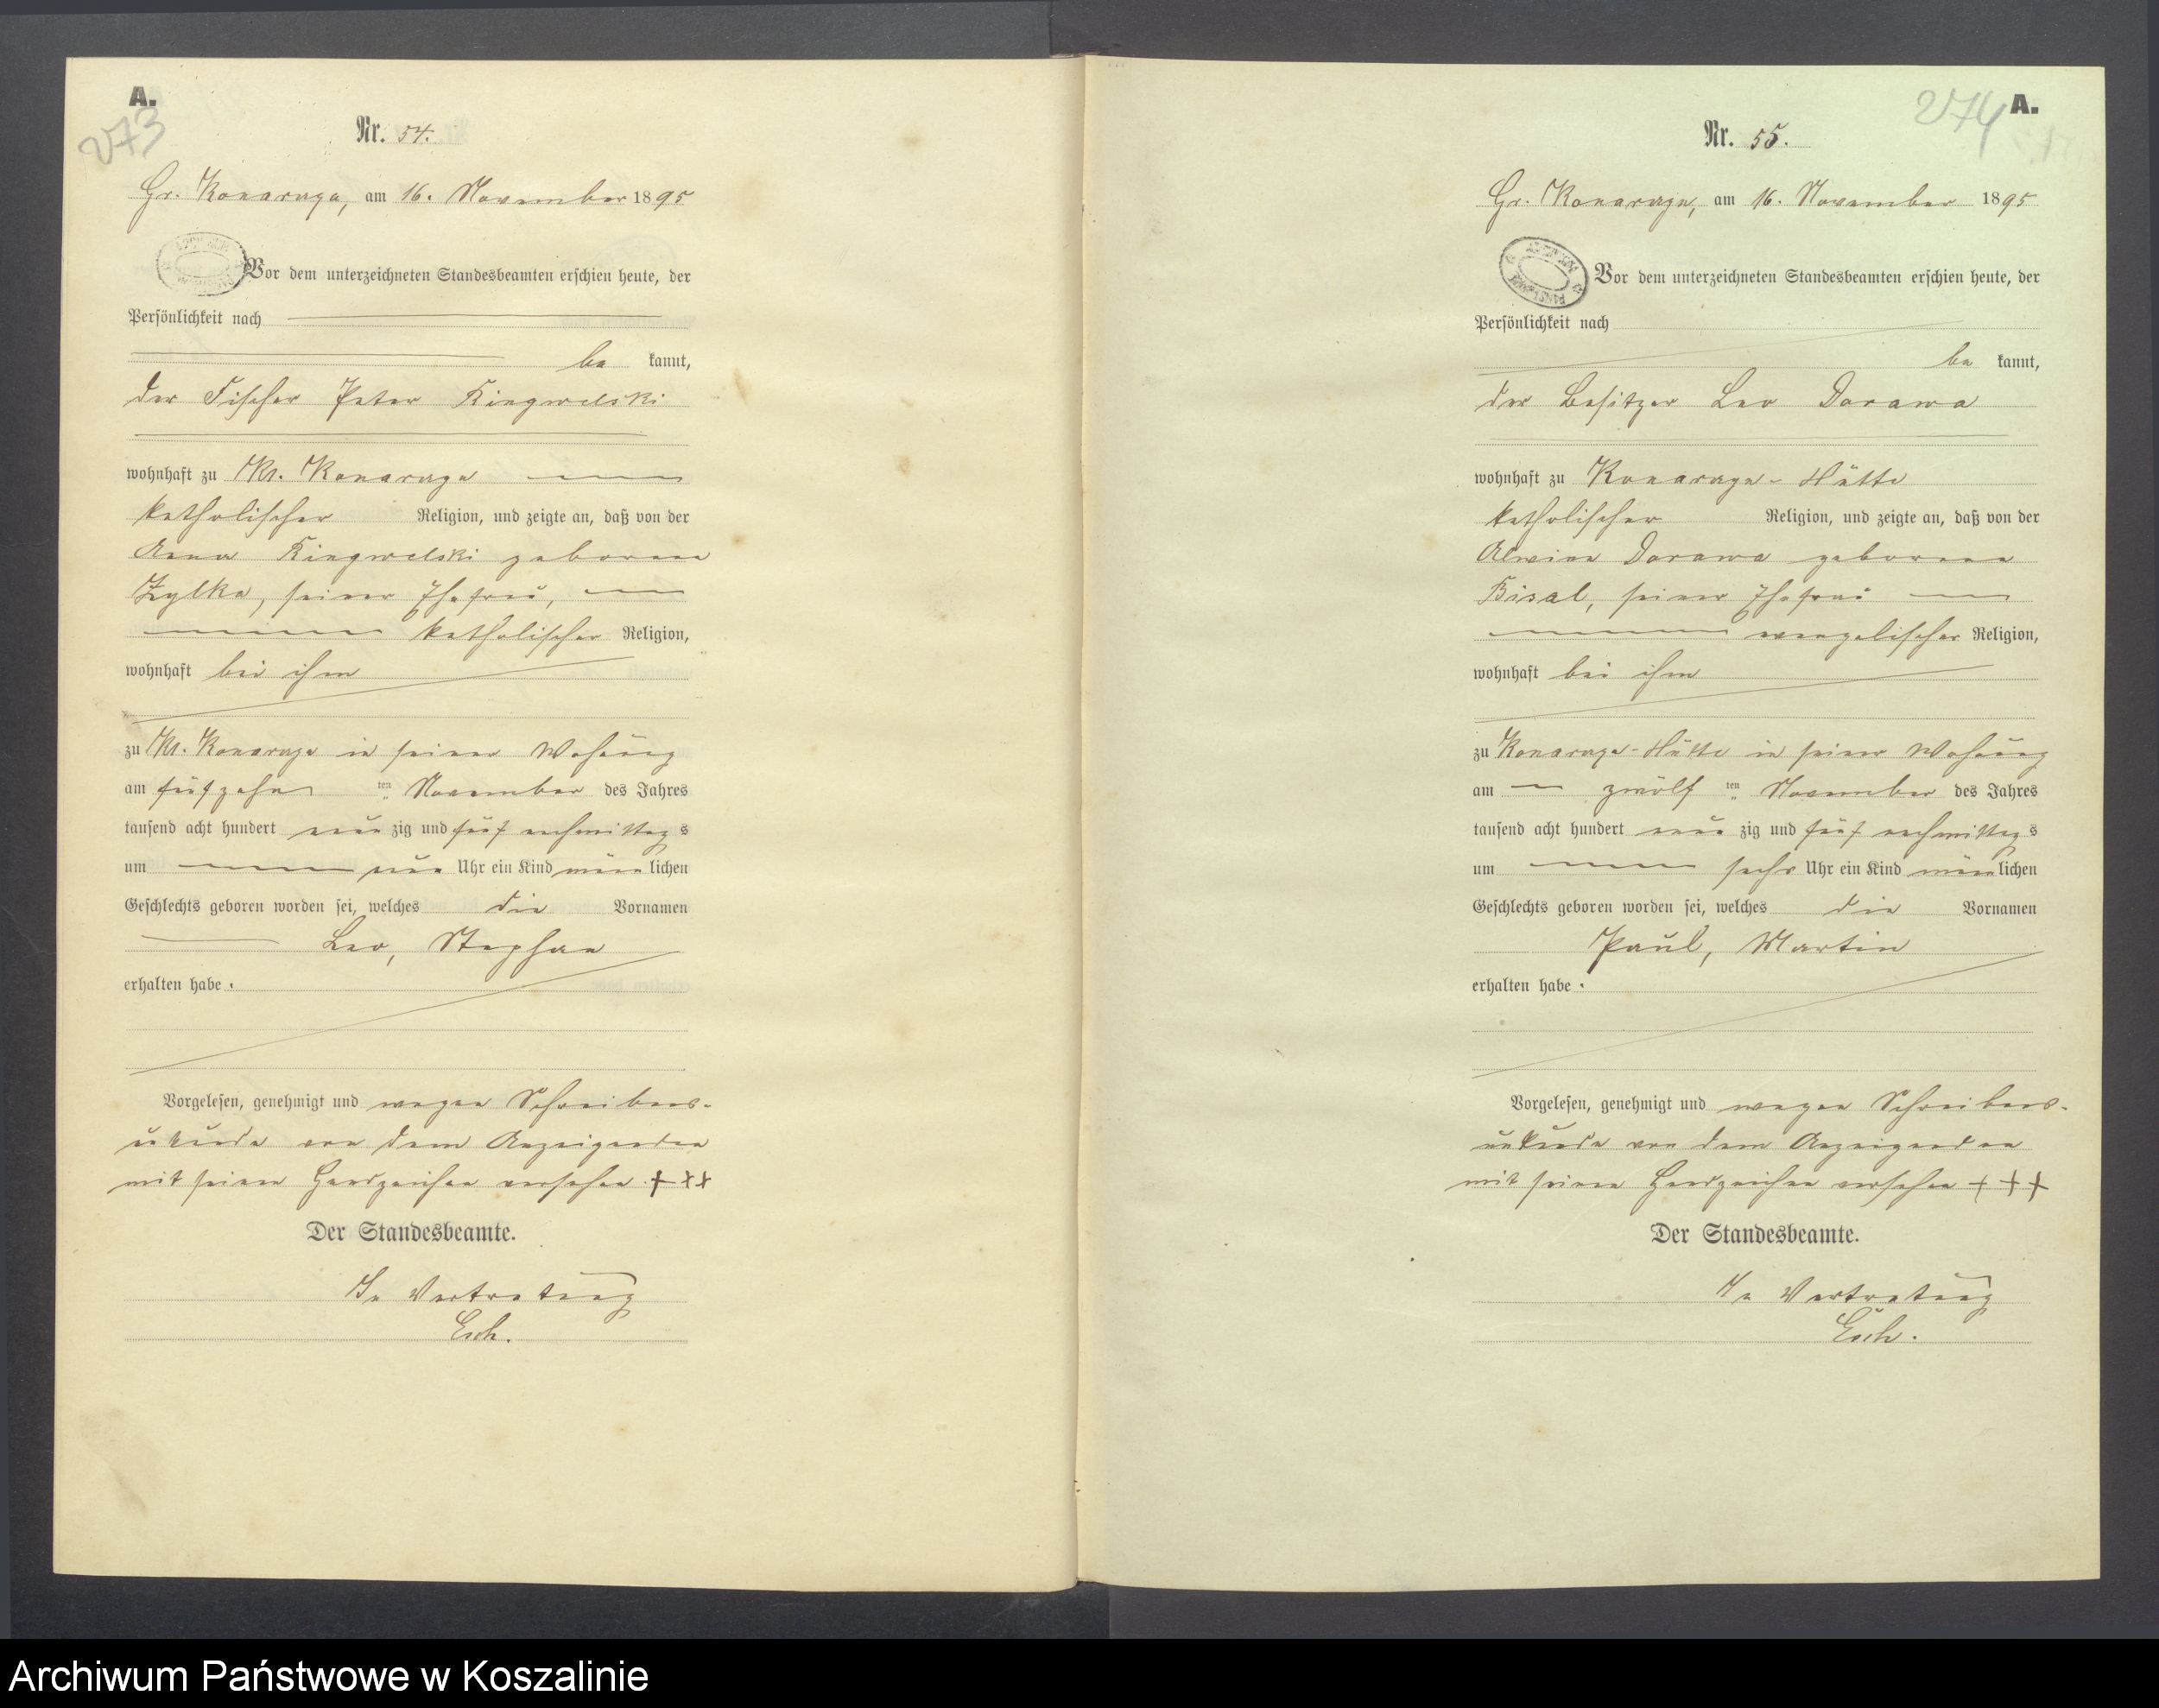 A.
273
Nr. 54.
Gr. Konarczyn, am 16. November 1895
Vor dem unterzeichneten Standesbeamten erschien heute, der
Persönlichkeit nach
be kannt,
der Fischer Peter
wohnhaft zu Kl. Konarczyn
katholischer Religion, und zeigte an, daß von der
Anna geborene
Zylka, seiner Ehefrau,
katholischer Religion,
wohnhaft bei ihm
zu Kl. Konarczyn in seiner Wohnung
am fünfzehn ten November des Jahres
tausend acht hundert neun zig und fünf nachmittag s
um neun Uhr ein Kind männ lichen
Geschlechts geboren worden sei, welches die Vornamen
Leo, Stephan
erhalten habe.
Vorgelesen, genehmigt und wegen Schreibens-
unkunde von dem Anzeigenden
mit seinen Handzeichen versehen +++
Der Standesbeamte.
In Vertretung
Esch.
274 A.
Nr. 55.
Gr. Konarczyn, am 16. November 1895
Vor dem unterzeichneten Standesbeamten erschien heute, der
Persönlichkeit nach
be kannt,
der Besitzer Leo Dorawa
wohnhaft zu Konarczyn-Hütte
katholischer Religion, und zeigte an, daß von der
Alwine Dorawa geborene
seiner Ehefrau
evangelischer Religion,
wohnhaft bei ihm
zu Konarczyn-Hütte in seiner Wohnung
am zwölf ten November des Jahres
tausend acht hundert neun zig und fünf nachmittag s
um sechs Uhr ein Kind männ lichen
Geschlechts geboren worden sei, welches die Vornamen
Paul, Martin
erhalten habe.
Vorgelesen, genehmigt und wegen Schreibens-
unkunde von dem Anzeigenden
mit seinen Handzeichen versehen +++
Der Standesbeamte.
In Vertretung
Esch.
Archiwum Państwowe w Koszalinie